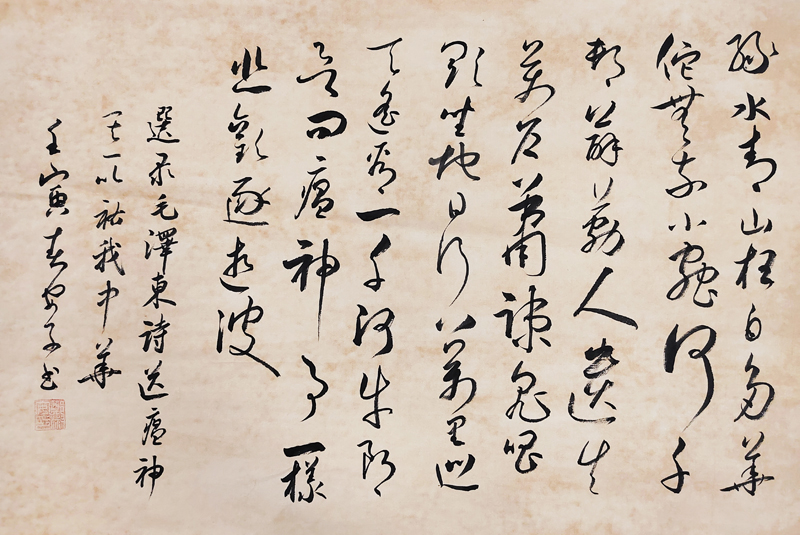 綠水青山枉自多華
佗無奈小蟲何千
村薜荔人遺矢
萬戶蕭疎鬼唱
歌坐地日行八萬里巡
天遙看一千河牛郎
欲問瘟神事一樣
悲歡逐逝波
選录毛澤東詩送瘟神
其一以祐我中華
壬寅春子书